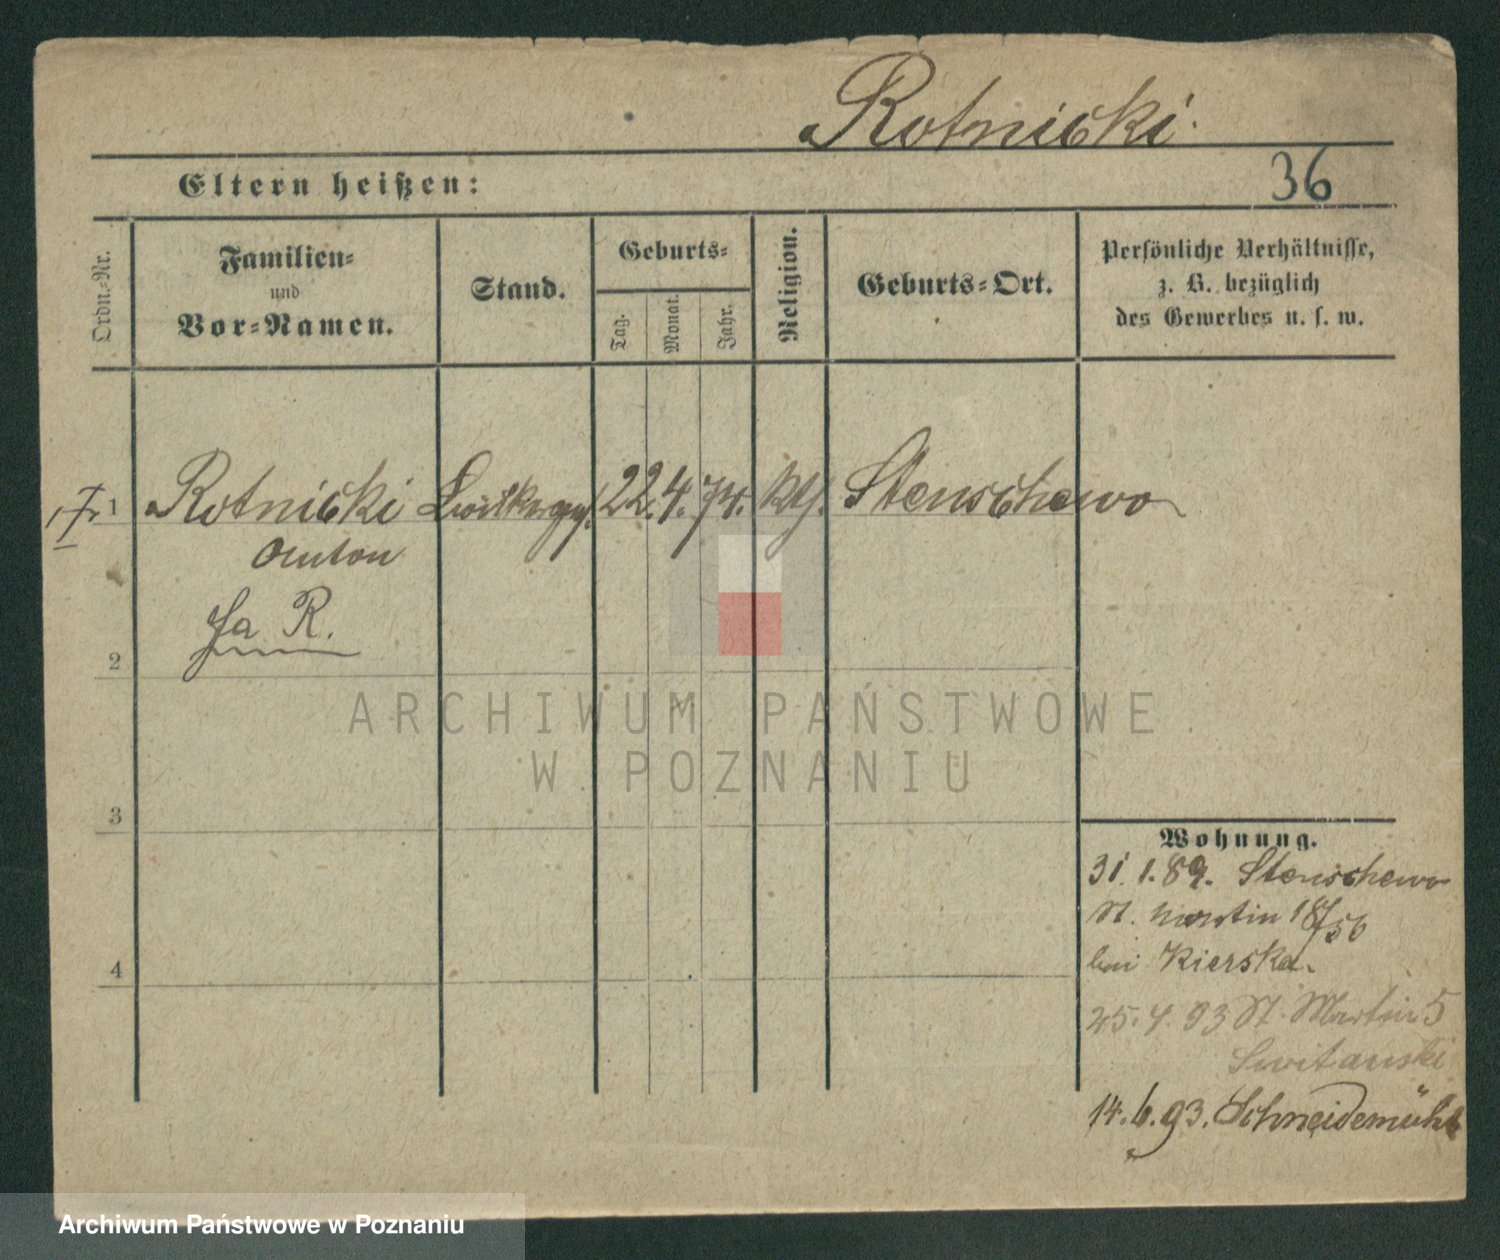 Rotnicki.
Eltern heißen:
36
Ordn.-Nr.
Familien-
und
Vor-Namen.
Stand.
Geburts-
Tag.
Monat.
Jahr.
Religion.
Geburts-Ort.
Persönliche Verhältnisse,
z. B. bezüglich
des Gewerbes u. s. w.
1
Rotnicki 22. 4. 74. kth. Stenschewo
Anton
Ja R.
2
3
4
ARCHIWUM PAŃSTWOWE
W POZNANIU
Wohnung.
31. 1. 89. Stenschewo
St. Martin 18/56
bei Kierska.
25. 4. 93 St. Martin 5
Switanski
14. 6. 93. Schneidemühl
Archiwum Państwowe w Poznaniu